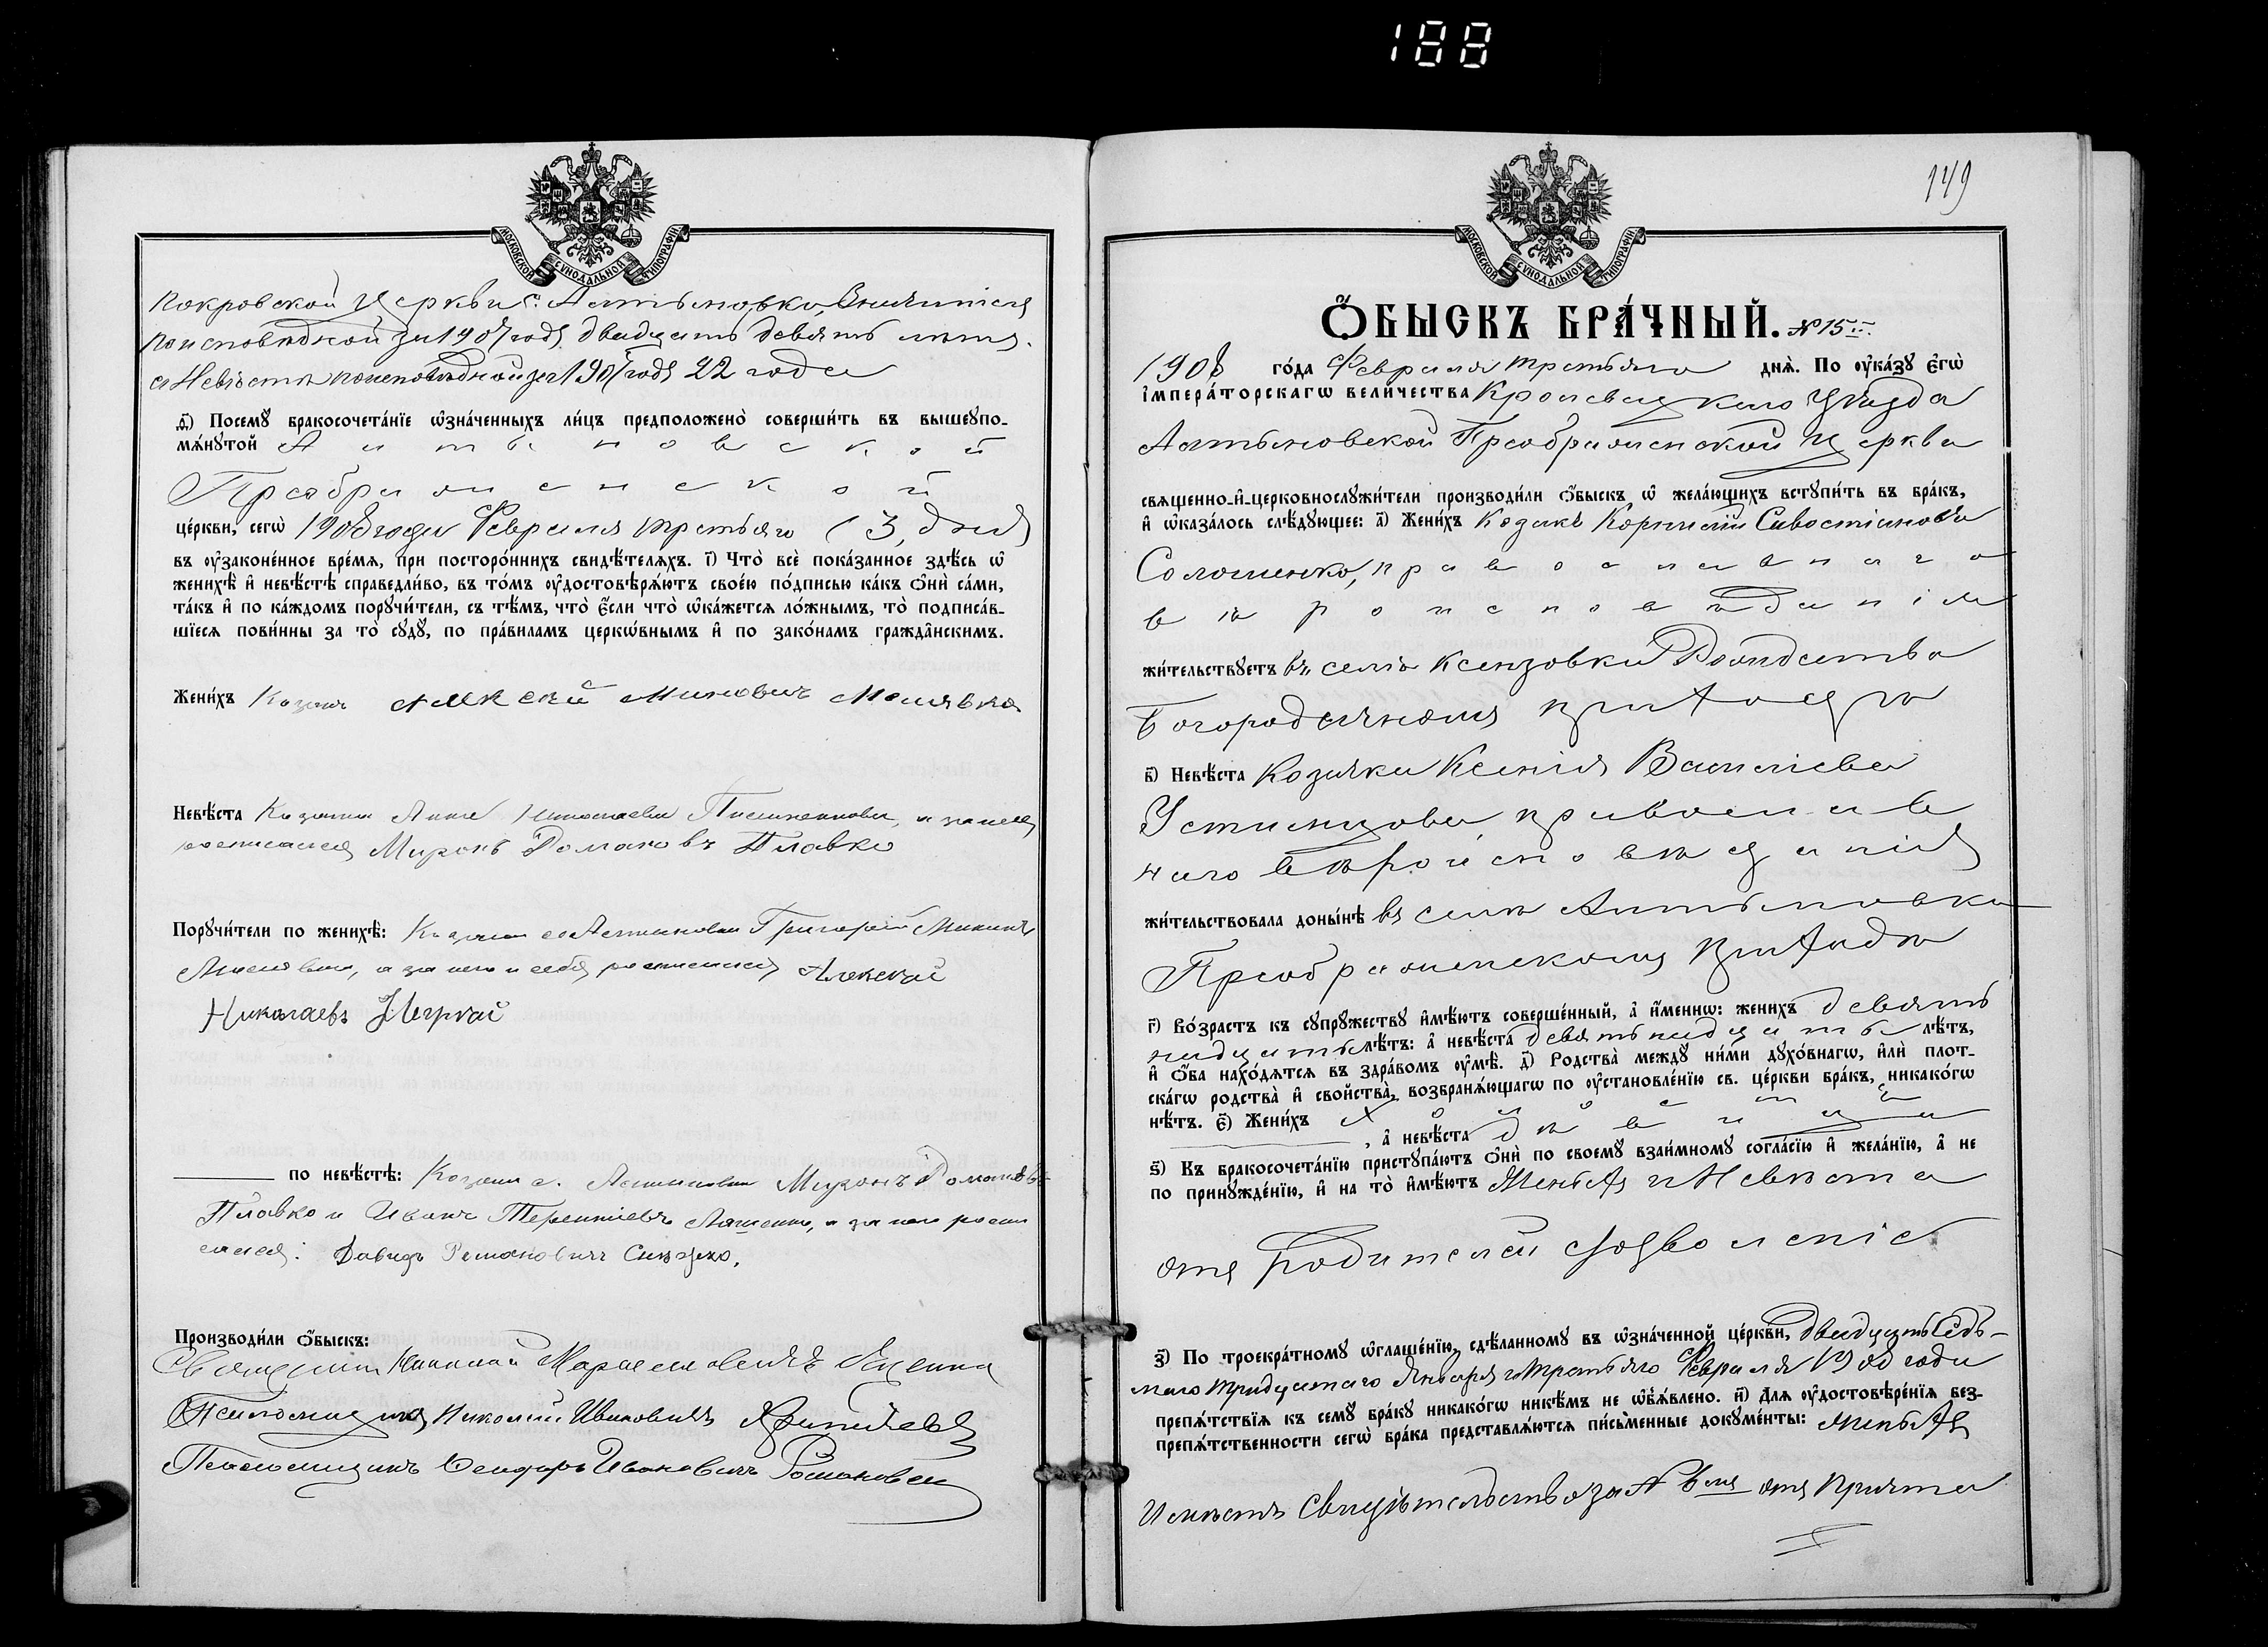 188
МОСКОВСКОЙ СѴНОДАЛЬНОЙ ТИПОГРАФІИ
Покровской Церкви с.
по исповѣдной за 1907 годъ двадцать девять лѣтъ.
а Невѣста по исповѣдной за 1907 годъ 22 года
ѳ҃) Посемꙋ̀ бракосочета́нїе ѡ҆зна́ченныхъ ли́цъ предположено̀ соверши́ть въ вышеꙋпо-
мѧ́нꙋтой Алтыновской
Преображенской
це́ркви, сегѡ̀ 1908 года Февраля третьяго (3, дня)
въ ᲂу҆законе́нное вре́мѧ, при посторо́ннихъ свидѣ́телѧхъ. і҃) Что̀ всѐ пока́занное здѣ́сь ѡ҆
женихѣ̀ и҆ невѣ́стѣ справедли́во, въ то́мъ ᲂу҆достовѣрѧ́ютъ свое́ю по́дписью ка́къ ѻ҆нѝ са́ми,
та́къ и҆ по ка́ждомъ порꙋчи́тели, съ тѣ́мъ, что̀ є҆́сли что̀ ѡ҆ка́жетсѧ ло́жнымъ, то̀ подписа́в-
шїесѧ пови́нны за то̀ сꙋдꙋ̀, по пра́виламъ церкѡ́внымъ и҆ по зако́намъ гражда̑нскимъ.
Жени́хъ Козакъ Алексѣй Миновичъ
Невѣ́ста Козачка Анна а за нее
росписался Миронъ Романовъ Плавко
Порꙋчи́тели по женихѣ̀: Козаки с. Алтыновки Григорій Мининъ
а за него и себя росписался Алексѣй
Николаевъ
по невѣ́стѣ: Козаки с. Алтыновки Миронъ Романовъ
Плавко и Иванъ Терентіевъ Ляшенко, а за него роспи
сался: Давидъ Романовичъ
Производи́ли ѻ҆́быскъ:
Священникъ Николай
Псаломщикъ Николай Ивановичъ
Псаломщикъ Ивановичъ
149
МОСКОВСКОЙ СѴНОДАЛЬНОЙ ТИПОГРАФІИ
Ѻ҆́БЫСКЪ БРА́ЧНЫЙ. № 15
1908 го́да Февраля третьяго днѧ̀. По ᲂу҆ка́зꙋ є҆гѡ̀
і҆мпера́торскагѡ вели́чества Кролевецкаго Уѣзда
Алтыновской Преображенской Церкви
свѧщенно-и҆-церковнослꙋжи́тели производи́ли ѻ҆́быскъ ѡ҆ жела́ющихъ вступи́ть въ бра́къ,
и҆ ѡ҆каза́лось слѣ́дꙋющее: а҃) Жени́хъ Козакъ Корнилій Савостіановъ
Соломенко, православнаго
вѣроисповѣданія
жи́тельствꙋетъ въ селѣ Ксензовкѣ Рождества
Богородичномъ приходѣ
в҃) Невѣ́ста Козачка Ксенія Василіева
Устимцова православ
наго вѣроисповѣданія
жи́тельствовала доны́нѣ въ селѣ Алтыновкѣ
Преображенскомъ приходѣ
г҃) Во́зрастъ къ сꙋпрꙋжествꙋ и҆мѣ́ютъ соверше́нный, а҆ и҆́меннѡ: жени́хъ девять
надцать лѣ́тъ: а҆ невѣ́ста девятьнадцать лѣ́тъ,
и҆ ѻ҆́ба нахо́дѧтсѧ въ здра́вомъ ᲂу҆мѣ̀. д҃) Родства̀ междꙋ̀ ни́ми дꙋхо́внагѡ, и҆лѝ плот-
ска́гѡ родства̀ и҆ сво́йства̀, возбранѧ́ющагѡ по ᲂу҆становле́нїю св. це́ркви бра́къ, никако́гѡ
нѣ́тъ. є҃) Жени́хъ холостъ
, а҆ невѣ́ста дѣвица
ѕ҃) Къ бракосочета́нїю пристꙋпа́ютъ ѻ҆нѝ по своемꙋ̀ взаи́мномꙋ согла́сїю и҆ жела́нїю, а҆ не
по принꙋжде́нїю, и҆ на то̀ и҆мѣ́ютъ Женихъ и Невѣста
отъ родителей дозволеніе
з҃) По троекра́тномꙋ ѡ҆глаше́нїю, сдѣ́ланномꙋ въ ѡ҆зна́ченной це́ркви, двадцать седь-
маго тридцатаго Января и третьяго Февраля 1908 года
препѧ́тствїѧ къ семꙋ̀ бра́кꙋ никако́гѡ никѣ́мъ не ѡ҆б̾ѧ́влено. и҃) Длѧ ᲂу҆достовѣре́нїѧ без-
препѧ́тственности сегѡ̀ бра́ка представлѧ́ютсѧ пи́сьменные докꙋме́нты: женихъ
имѣетъ свидѣтельство за № отъ причта